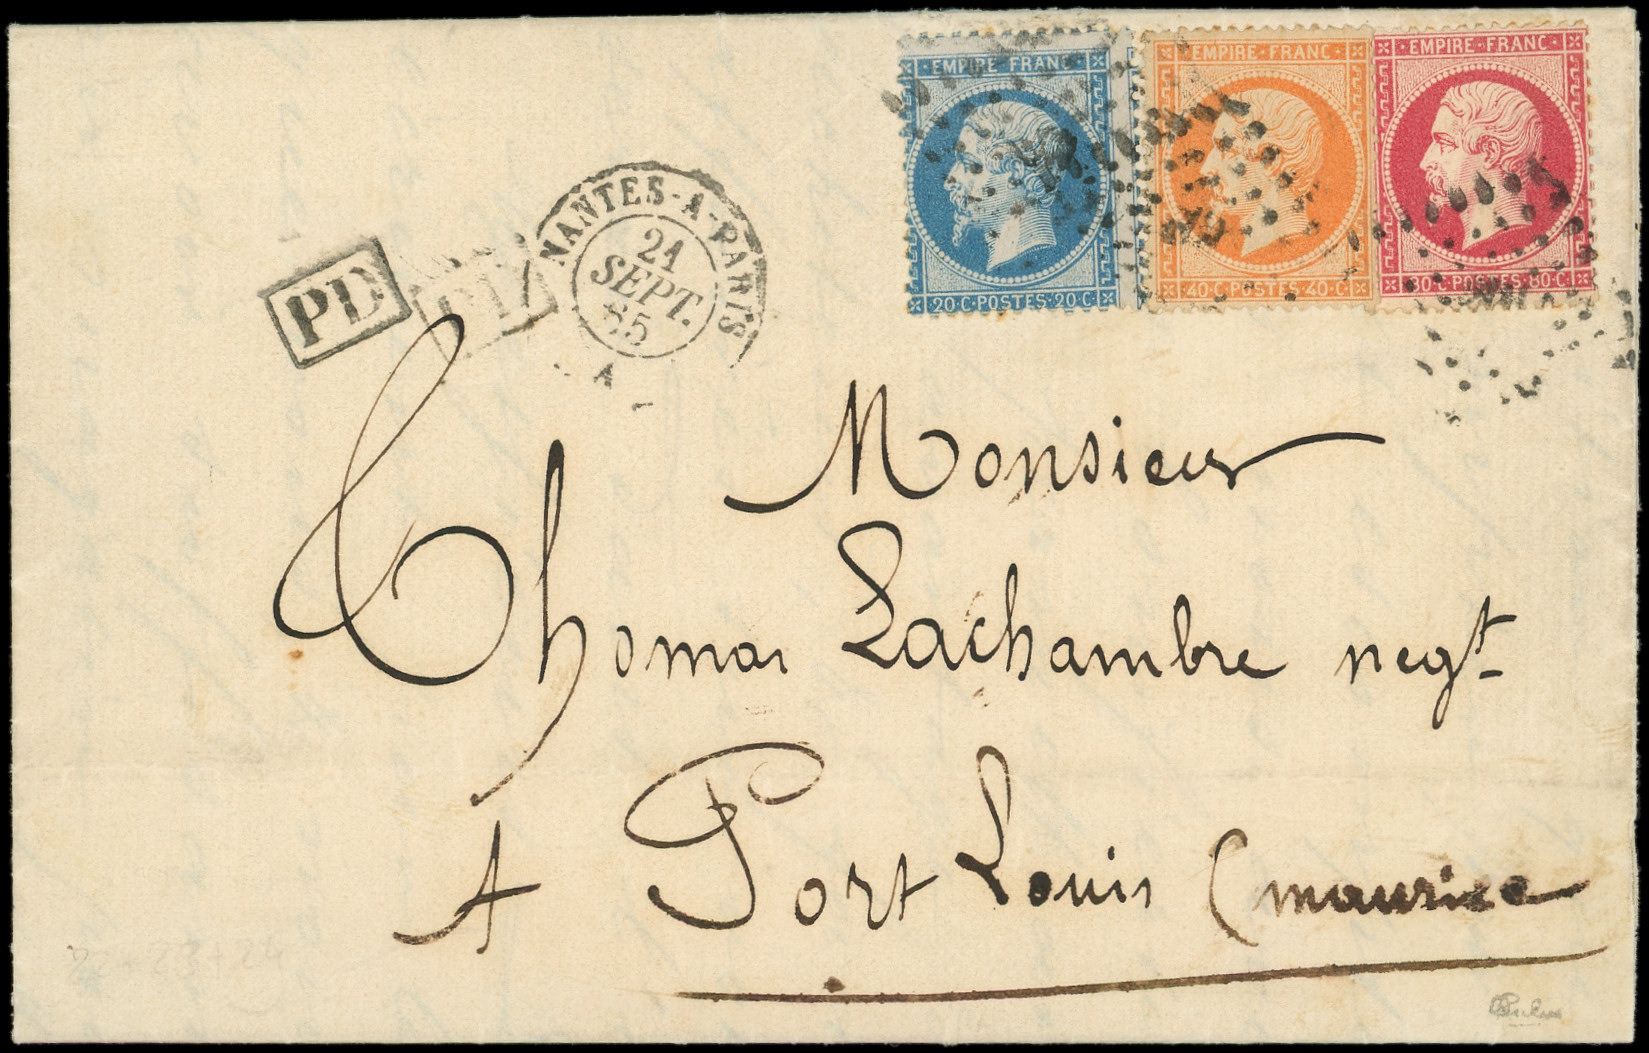 EMPIRE FRANC
20·C·POSTES·20·C
EMPIRE·FRANC
40·C·POSTES·40·C
EMPIRE·FRANC
80·C·POSTES·80·C
NANTES-A-PARIS
21
SEPT.
65
PD
PD
Monsieur
Thomas Lachambre negt
A Port Louis (maurice
22+23+24